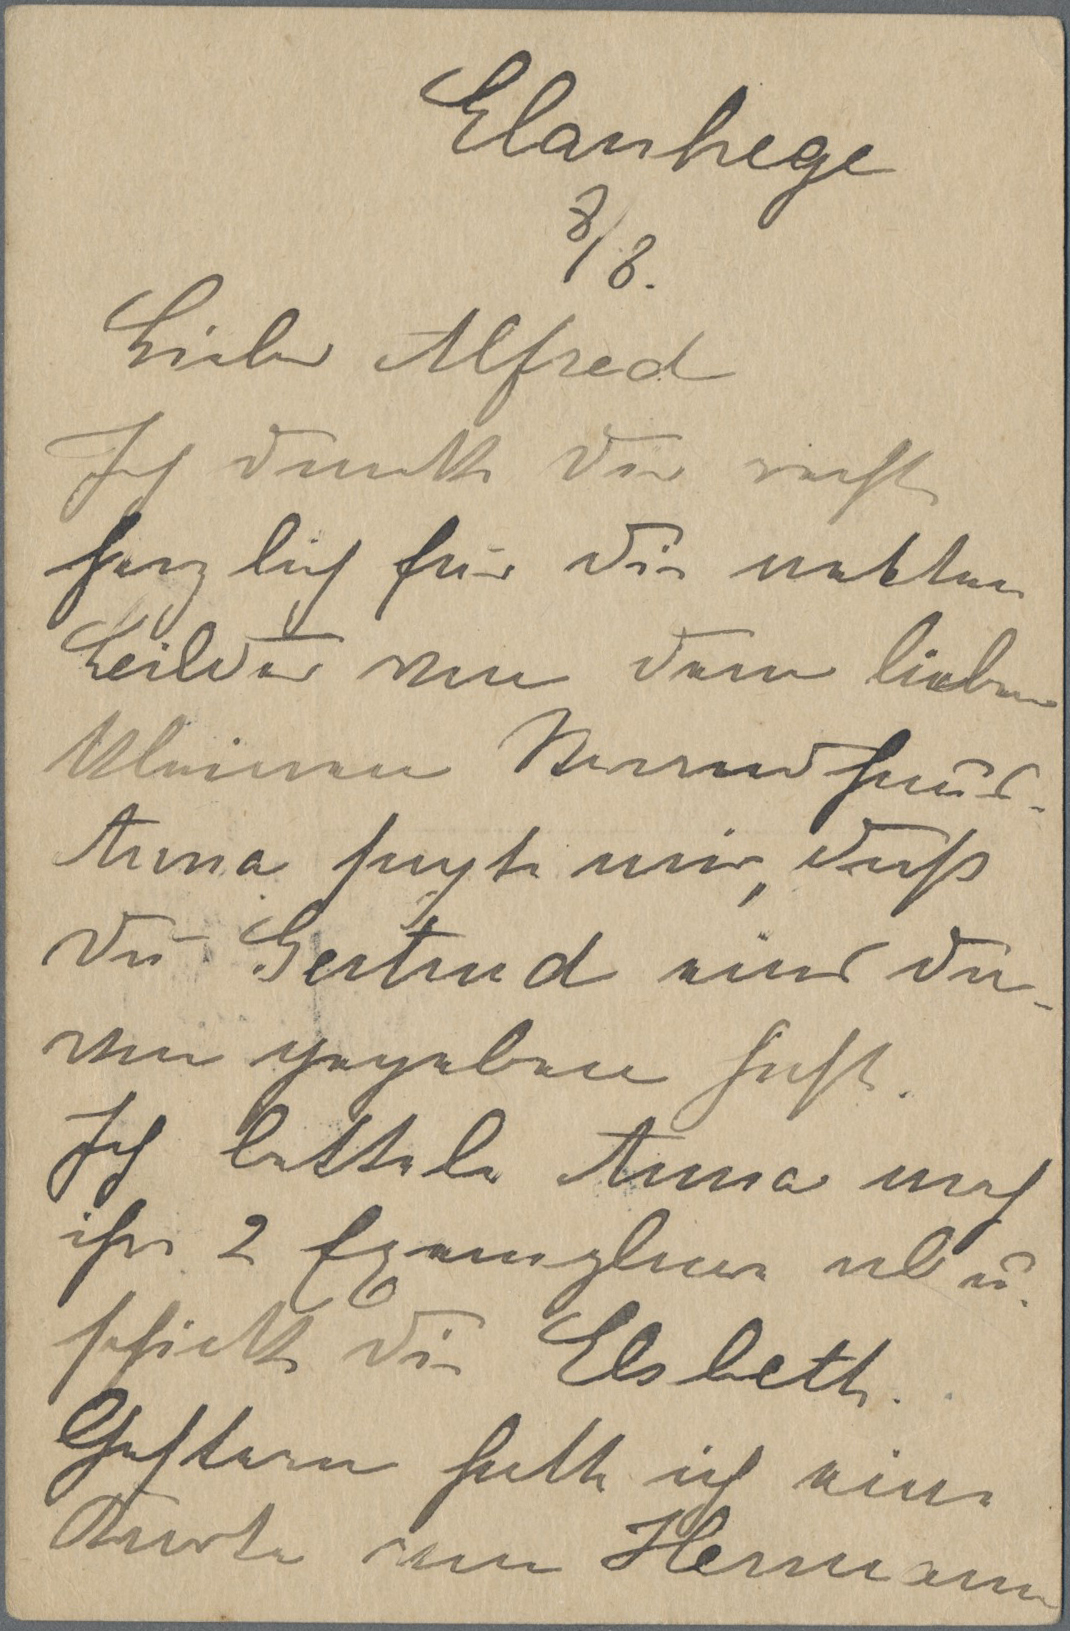 Elanhege
8/8.
Lieber Alfred
Ich danke Dir recht
herzlich für die netten
Bilder von dem lieben
kleinen
Anna sagte mir, daß
du Gertrud eins da-
von gegeben hast.
Ich bettele Anna noch
ihre 2 Exemplare ab u.
schicke die Elsbeth.
Gestern hatte ich eine
Karte von Hermann